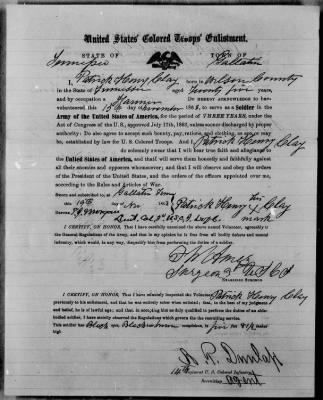 United States' Colored Troops' Enlistment.
STATE OF TOWN OF
Tennessee Gallatin
I, Patrick Henry Clay born in Wilson County
in the State of Tennessee aged Twenty five years,
and by occupation a Farmer DO HEREBY ACKNOWLEDGE to have
volunteered this 19th day of November 1863, to serve as a Soldier in the
Army of the United States of America, for the period of THREE YEARS, under the
Act of Congress of the U.S., approved July 17th, 1862, unless sooner discharged by proper
authority: Do also agree to accept such bounty, pay, rations, and clothing, as are, or may
be, established by law for U.S. Colored Troops. And I, Patrick Henry Clay
do solemnly swear that I will bear true faith and allegiance to
the United States of America, and that I will serve them honestly and faithfully against
all their enemies and opposers whomsoever; and that I will observe and obey the orders
of the President of the United States, and the orders of the officers appointed over me,
according to the Rules and Articles of War.
Sworn and subscribed to, at Gallatin Tenn
this 19th day of Nov 1863
BEFORE
Patrick Henry his X Clay
mark
I CERTIFY, ON HONOR, That I have carefully examined the above named Volunteer, agreeably to
the General Regulations of the Army, and that in my opinion he is free from all bodily defects and mental
infirmity, which would, in any way, disqualify him from performing the duties of a soldier.
Surgeon
EXAMINING SURGEON
I CERTIFY, ON HONOR, That I have minutely inspected the Volunteer, Patrick Henry Clay
previously to his enlistment, and that he was entirely sober when enlisted; that, to the best of my judgment
and belief, he is of lawful age; and that, in accepting him as duly qualified to perform the duties of an able-
bodied soldier, I have strictly observed the Regulations which govern the recruiting service.
This soldier has Black eyes, Black hair, complexion, is five feet
high.
14th Regiment U.S. Colored Infantry,
Recruiting Agent